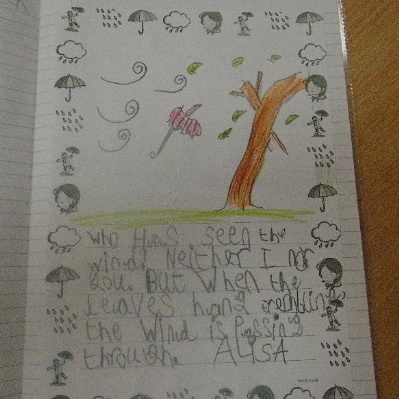 who Has seen the
wind? Neither I nor
you. But when the
leaves hang trembling
the wind is Passing
through. AlisA